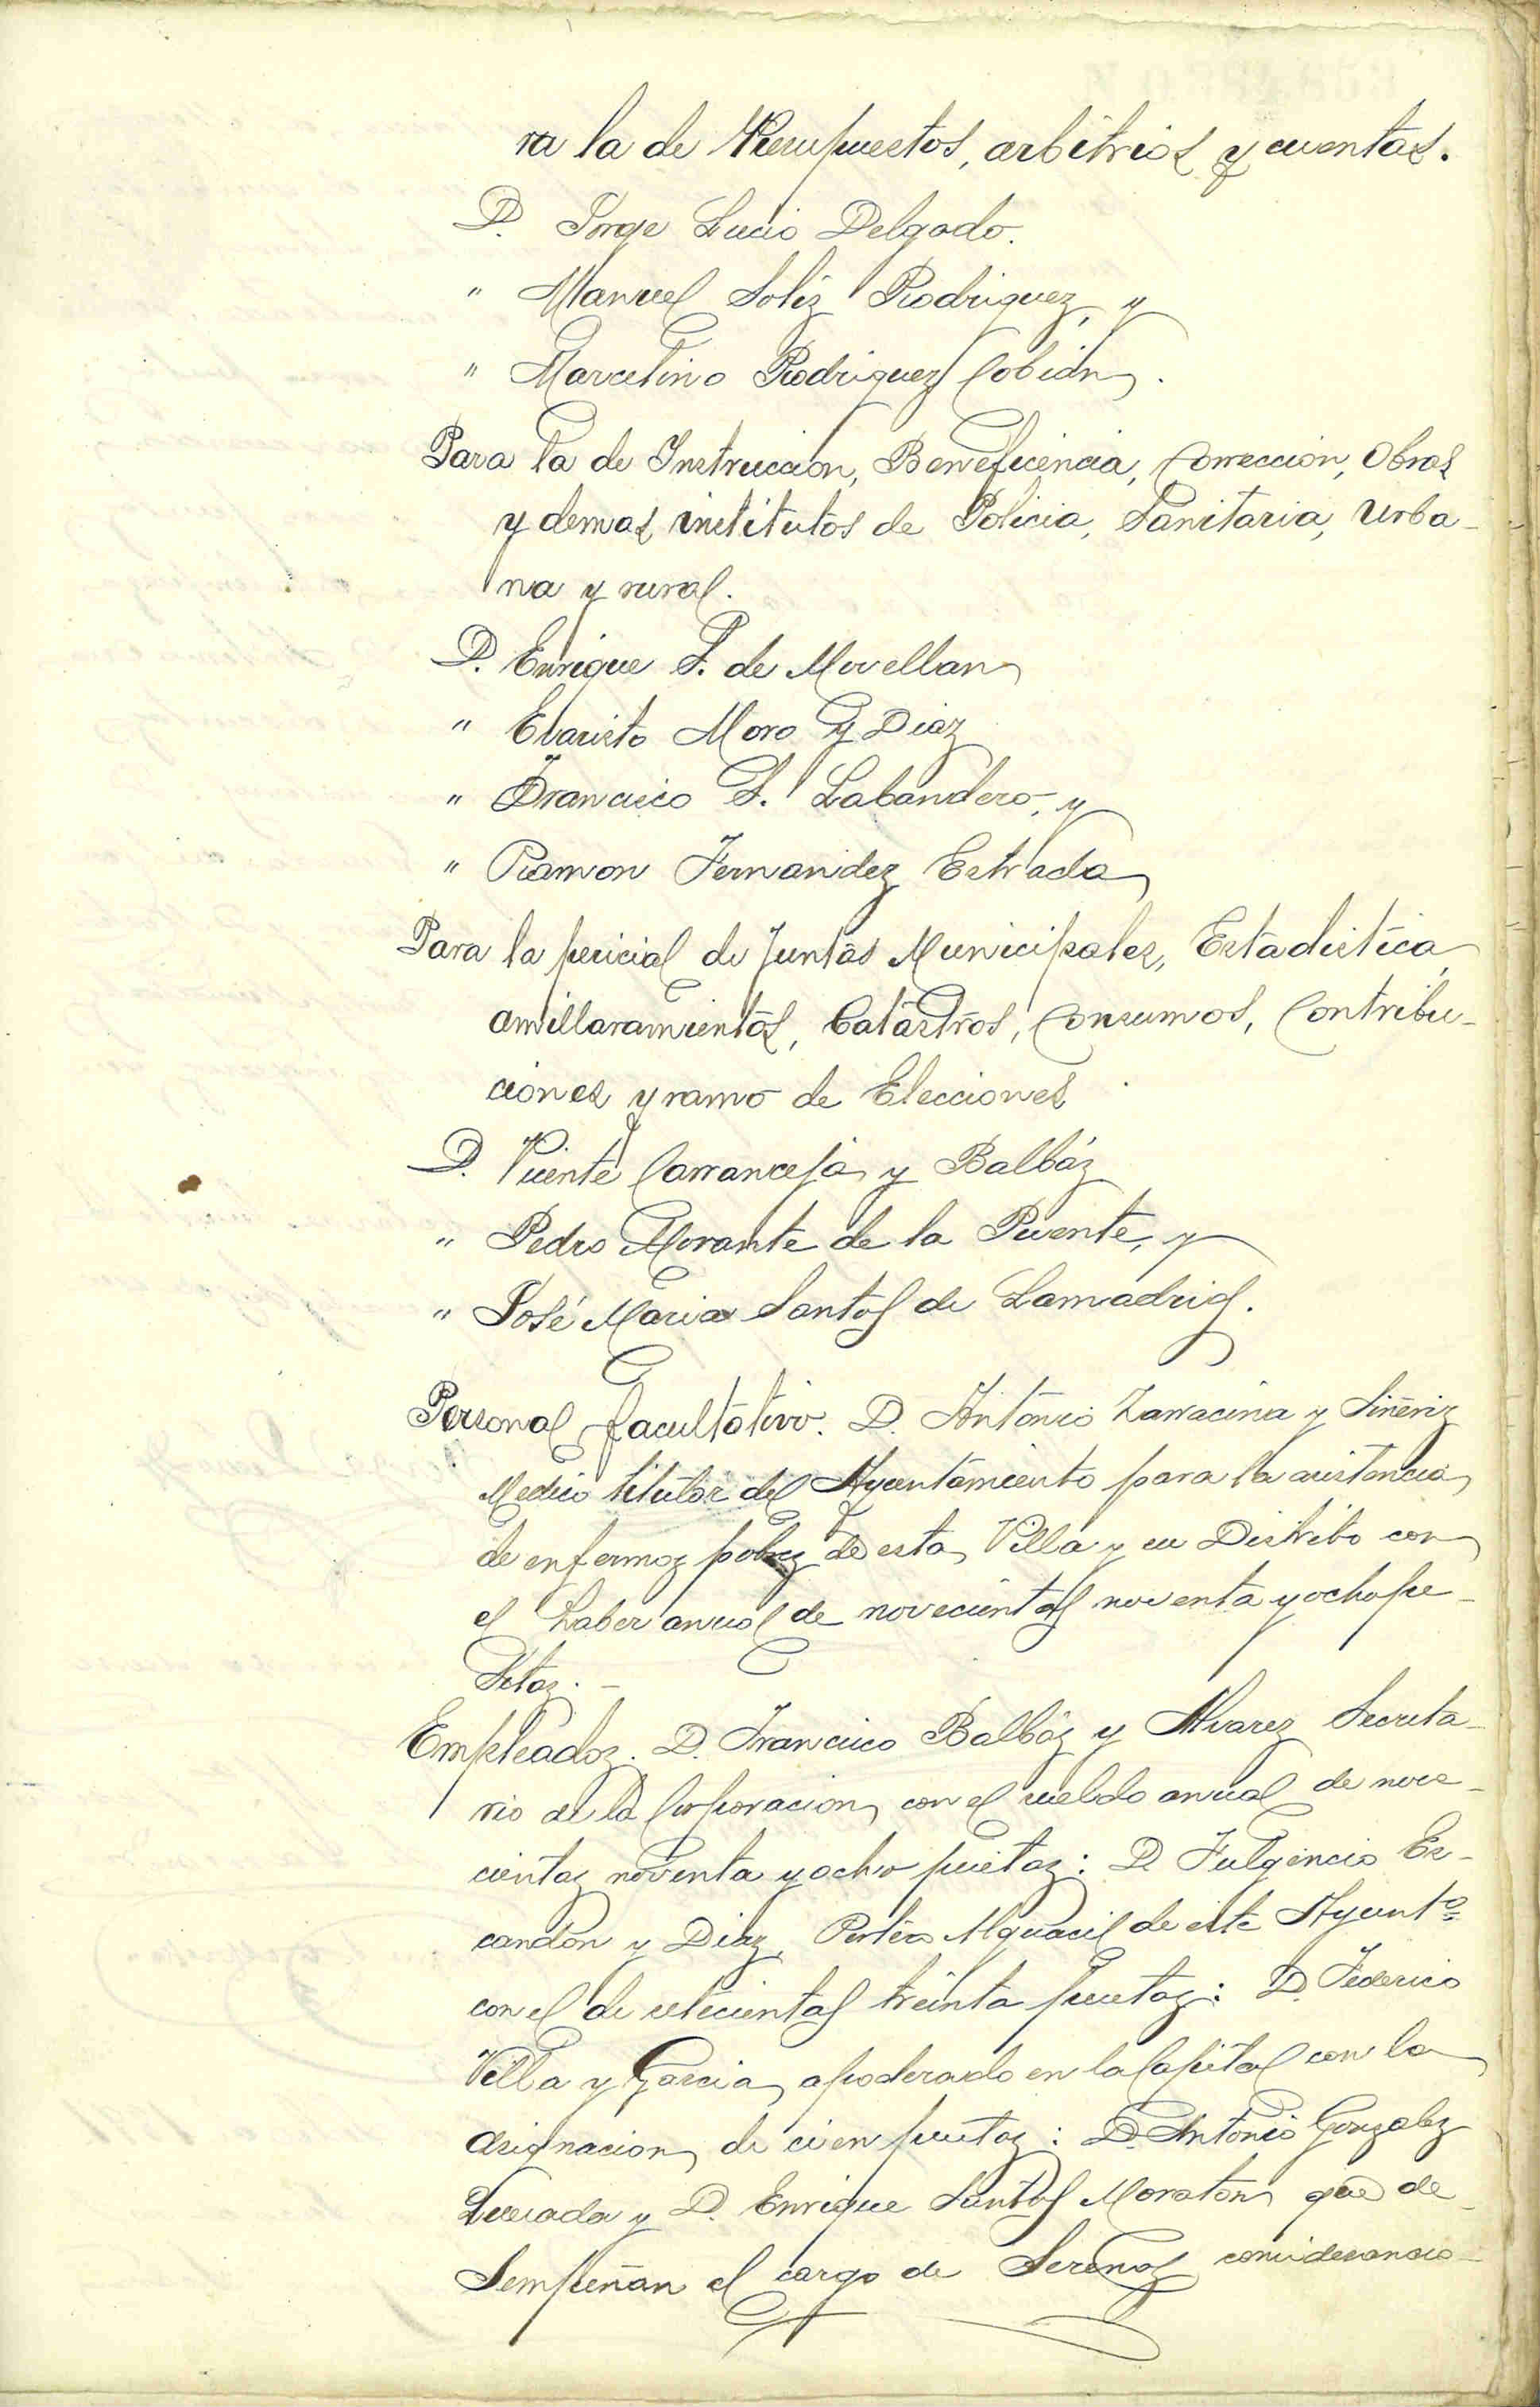 ra la de Presupuestos, arbitrios y cuentas.
D. Jorge Lucio Delgado.
" Manuel Soliz Rodriguez, y
" Marcelino Rodriguez Cobián.
Para la de Instruccion, Beneficencia, Correccion, Obras
y demas institutos de Policia, Sanitaria, Urba-
na y rural.
D. Enrique S. de Movellan
" Evaristo Moro y Diaz
" Francisco S. Labandero, y
" Ramon Fernandez Estrada
Para la pericial de Juntas Municipales, Estadistica,
amillaramientos, Catastros, Consumos, Contribu-
ciones y ramo de Elecciones
D. Vicente Carranceja y Balbáz
" Pedro Morante de la Puente, y
" José Maria Santos de Lamadrid.
Personal facultativo. D. Antonio Zarracina y Siñeriz
Medico titular del Ayuntamiento para la asistencia
de enfermoz pobrez de esta Villa y su Distrito con
el haber anual de novecientas noventa y ocho pe-
setaz. -
Empleadoz. D. Francisco Balbáz y Alvarez Secreta-
rio de la Corporacion con el sueldo anual de nove-
cientaz noventa y ocho pesetaz: D. Fulgencio Es-
candon y Diaz, Portero Alguacil de este Ayuntº
con el de setecientas treinta pesetaz: D. Federico
Villa y Garcia apoderado en la Capital con la
asignacion de cien pesetaz: D. Antonio Gonzalez
y D. Enrique Santos Moraton que de-
sempeñan el cargo de Serenos